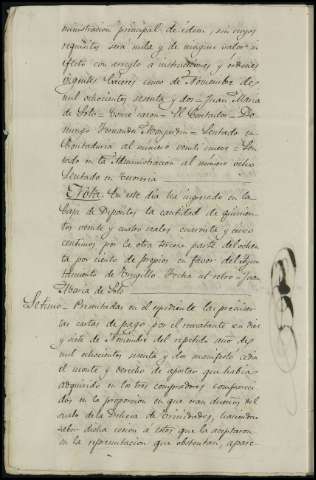 ministracion principal de idem, sin cuyos
requisitos será nula y de ningun valor ni
efecto con arreglo a instrucciones y ordenes
vigentes. Cáceres cinco de Noviembre de
mil ochocientos sesenta y dos = Juan Maria
de Soto = Tomé razon = El Contador = Do-
mingo Fernandez = Sentado en
Contaduria al número veinte cinco = Sen-
tado en la Administracion al número ocho
Sentado en Tesoreria
Nota. En este dia ha ingresado en la
Caja de Depositos la cantidad de quinien-
tos veinte y cuatro reales cuarenta y cinco
centimos por la otra tercera parte del ochen-
ta por ciento de propios en favor del Ayun-
tamiento de Trugillo. Fecha ut retro = Juan
Maria de Soto
Setimo = Presentadas en el espediente las precisen-
tas cartas de pago, por el rematante en diez
y siete de Noviembre del repetido año de
mil ochocientos sesenta y dos manifestó cedia
el monte y derecho de apostar que habia
adquirido en los tres compradores comparecien-
tes en la proporcion en que eran dueños del
suelo de la Dehesa de haciendose
saber dicha cesion a estos que la aceptaron
en la representacion que obstentan, apare-